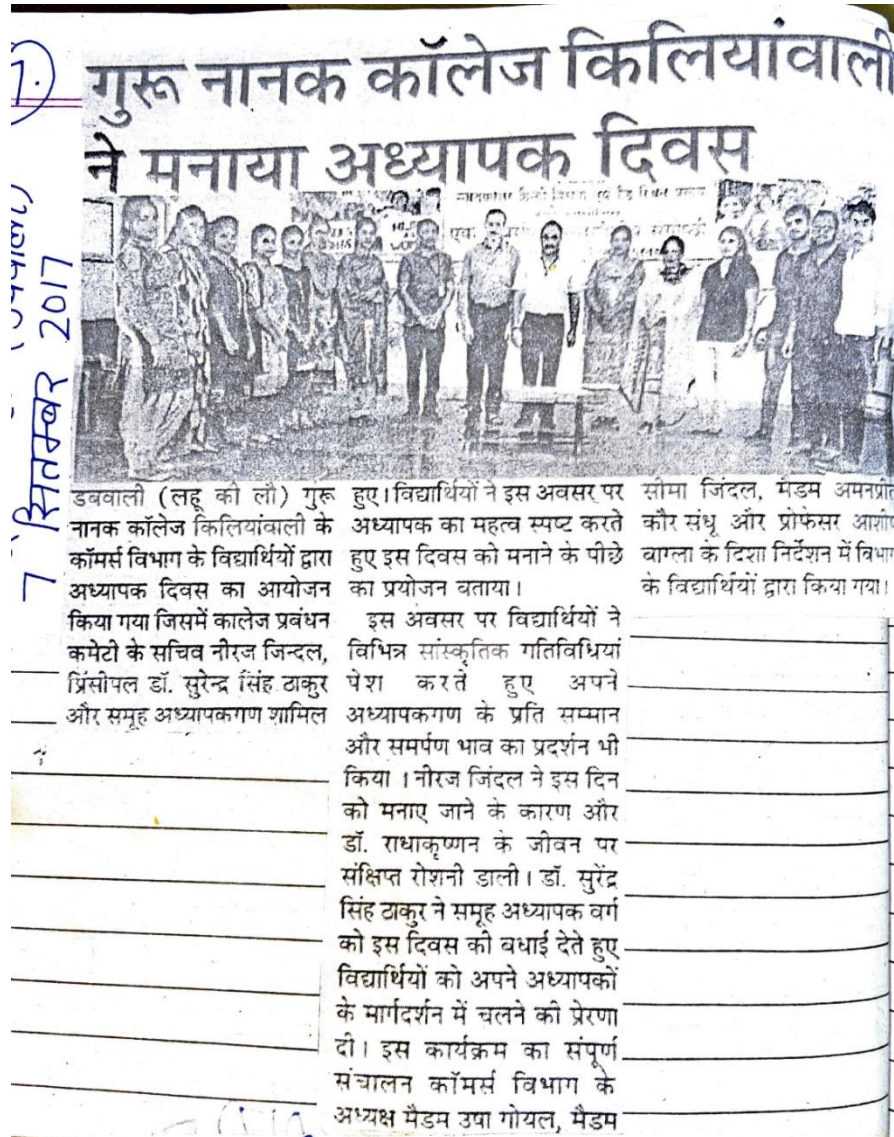 7.
गुरू नानक कॉलेज किलियांवाली
ने मनाया अध्यापक दिवस
7 सितम्बर 2017
डबवाली (लहू की लौ) गुरू
नानक कॉलेज किलियांवाली के
कॉमर्स विभाग के विद्यार्थियों द्वारा
अध्यापक दिवस का आयोजन
किया गया जिसमें कालेज प्रबंधन
कमेटी के सचिव नीरज जिन्दल,
प्रिंसीपल डॉ. सुरेन्द्र सिंह ठाकुर
और समूह अध्यापकगण शामिल
हुए। विद्यार्थियों ने इस अवसर पर
अध्यापक का महत्व स्पष्ट करते
हुए इस दिवस को मनाने के पीछे
का प्रयोजन बताया।
इस अवसर पर विद्यार्थियों ने
विभिन्न सांस्कृतिक गतिविधियां
पेश करते हुए अपने
अध्यापकगण के प्रति सम्मान
और समर्पण भाव का प्रदर्शन भी
किया। नीरज जिंदल ने इस दिन
को मनाए जाने के कारण और
डॉ. राधाकृष्णन के जीवन पर
संक्षिप्त रोशनी डाली। डॉ. सुरेंद्र
सिंह ठाकुर ने समूह अध्यापक वर्ग
को इस दिवस की बधाई देते हुए
विद्यार्थियों को अपने अध्यापकों
के मार्गदर्शन में चलने की प्रेरणा
दी। इस कार्यक्रम का संपूर्ण
संचालन कॉमर्स विभाग के
अध्यक्ष मैडम उषा गोयल, मैडम
सीमा जिंदल, मैडम अमनप्रीत
कौर संधू और प्रोफेसर आशीष
बाग्ला के दिशा निर्देशन में विभाग
के विद्यार्थियों द्वारा किया गया।